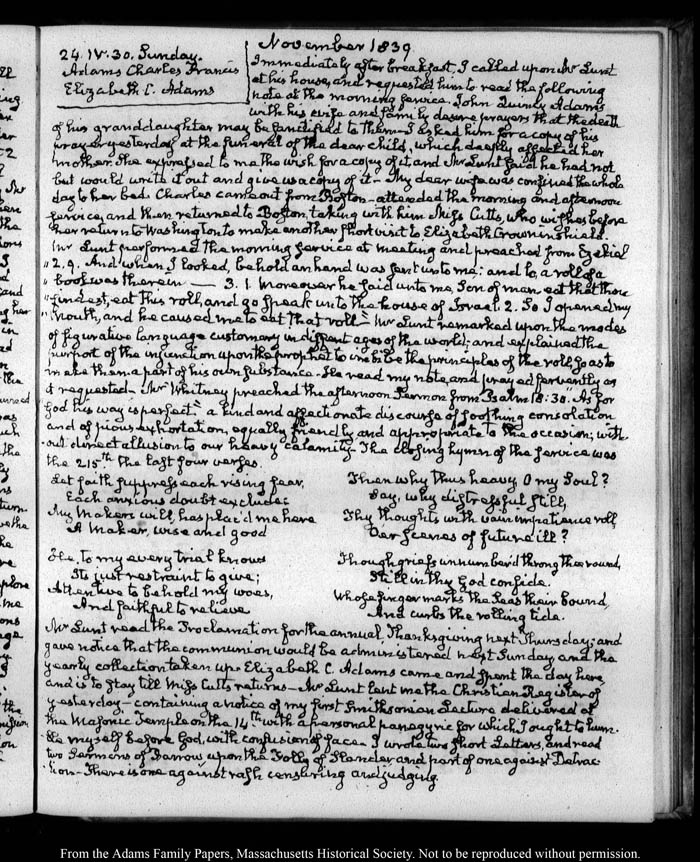 November 1839
24. IV:30. Sunday.
Adams Charles Francis
Elizabeth C. Adams
Immediately after breakfast, I called upon Mr Lunt
at his house, and requested him to read the following
note at the morning service. John Quincy Adams
with his wife and family desire prayers that the death
of his granddaughter may be sanctified to them—I asked him for a copy of his
prayer yesterday at the funeral of the dear child, which deeply affected her
mother. She expressed to me the wish for a copy of it, and Mr Lunt said he had not
but would write it out and give us a copy of it— My dear wife was confined the whole
day to her bed. Charles came out from Boston—attended the morning and afternoon
service, and then returned to Boston, taking with him Miss Cutts, who wishes before
her return to Washington to make another short visit to Elizabeth Crowninshield.
Mr Lunt performed the morning service at meeting and preached from Ezekiel
"2. 9. And when I looked, behold an hand was sent unto me: and lo, a roll of a
" book was therein — 3. 1. Moreover he said unto me, Son of man eat that thou
" findest, eat this roll, and go speak unto the house of Israel. 2. So I opened my
" Mouth, and he caused me to eat that roll" Mr Lunt remarked upon the modes
of figurative language customary in different ages of the world; and explained the
purport of the injunction upon the prophet to imbibe the principles of the roll, so as to
make them a part of his own substance. He read my note, and prayed fervently as
I requested— Mr Whitney preached the afternoon Sermon from Psalm 18:30. "As for
God his way is perfect" a kind and affectionate discourse of soothing consolation
and of pious exhortation, equally friendly and appropriate to the occasion; with-
out direct allusion to our heavy calamity— The closing hymn of the service was
the 215th the last four verses.
Let faith suppress each rising fear,
Each anxious doubt exclude:
My Maker's will, has plac'd me here
A Maker, wise and good
He, to my every trial knows
Its just restraint to give;
Attentive to behold my woes,
And faithful to relieve
Then why thus heavy O my Soul?
Say, why distressful still,
Thy thoughts with vain impatience roll,
Oer scenes of future ill?
Though griefs unnumber'd throng thee round,
Still in thy God confide.
Whose finger marks the Seas their bound,
And curbs the rolling tide.
Mr Lunt read the Proclamation for the annual Thanksgiving next Thursday; and
gave notice that the communion would be administered next Sunday and the
yearly collection taken up— Elizabeth C. Adams came and spent the day here,
and is to stay till Miss Cutts returns— Mr Lunt lent me the Christian Register of
yesterday—containing a notice of my first Smithsonian Lecture delivered at
the Masonic Temple on the 14th with a personal panegyric for which I ought to hum-
ble myself before God, with confusion of face. I wrote two short Letters, and read
two Sermons of Barrow upon the Folly of Slander and part of one against Detrac-
tion— There is one against rash censuring and judging.
From the Adams Family Papers, Massachusetts Historical Society. Not to be reproduced without permission.